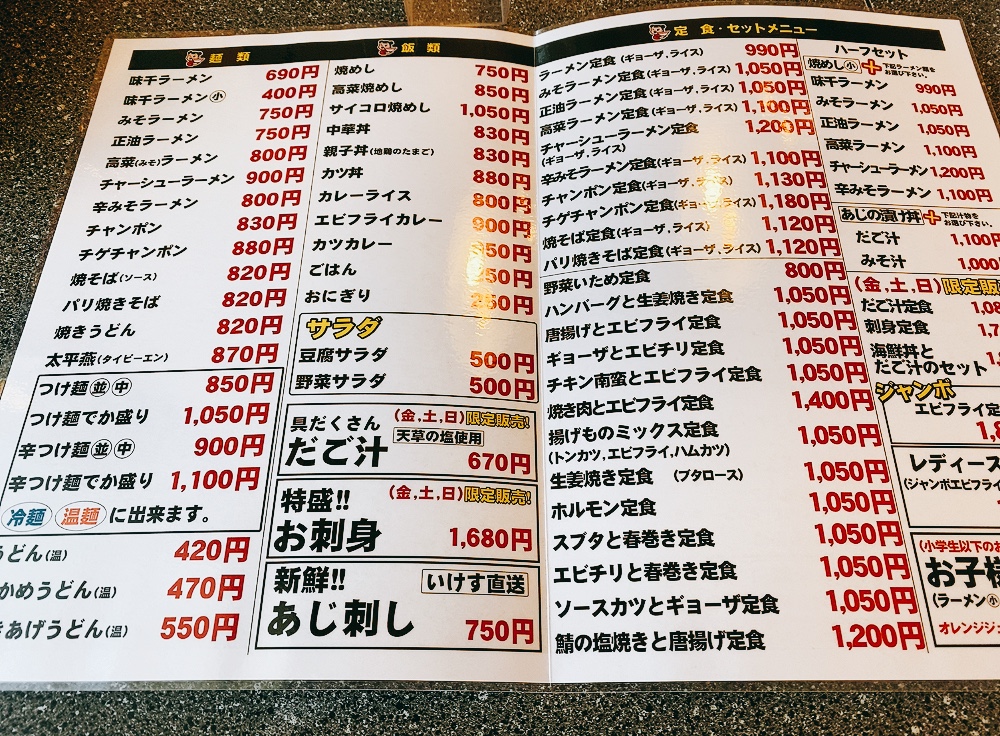 麺類
味千ラーメン 690円
味千ラーメン小 400円
みそラーメン 750円
正油ラーメン 750円
高菜(みそ)ラーメン 800円
チャーシューラーメン 900円
辛みそラーメン 800円
チャンポン 830円
チゲチャンポン 880円
焼そば(ソース) 820円
パリ焼きそば 820円
焼きうどん 820円
太平燕(タイピーエン) 870円
つけ麺並中 850円
つけ麺でか盛り 1,050円
辛つけ麺並中 900円
辛つけ麺でか盛り 1,100円
冷麺 温麺 に出来ます。
うどん(温) 420円
かめうどん(温) 470円
きあげうどん(温) 550円
飯類
焼めし 750円
高菜焼めし 850円
サイコロ焼めし 1,050円
中華丼 830円
親子丼(地鶏のたまご) 830円
カツ丼 880円
カレーライス 800円
エビフライカレー 900円
カツカレー 50円
ごはん 50円
おにぎり 50円
サラダ
豆腐サラダ 500円
野菜サラダ 500円
具だくさん (金,土,日)限定販売!
だご汁 天草の塩使用
670円
特盛!! (金,土,日)限定販売!
お刺身 1,680円
新鮮!! いけす直送
あじ刺し 750円
定食・セットメニュー
ラーメン定食(ギョーザ、ライス) 990円
みそラーメン定食(ギョーザ、ライス) 1,050円
正油ラーメン定食(ギョーザ、ライス) 1,050円
高菜ラーメン定食(ギョーザ、ライス) 1,100円
チャーシューラーメン定食 1,200円
(ギョーザ、ライス)
辛みそラーメン定食(ギョーザ、ライス) 1,100円
チャンポン定食(ギョーザ、ライス) 1,130円
チゲチャンポン定食(ギョーザ、ライス) 1,180円
焼そば定食(ギョーザ、ライス) 1,120円
パリ焼きそば定食(ギョーザ、ライス) 1,120円
野菜いため定食 800円
ハンバーグと生姜焼き定食 1,050円
唐揚げとエビフライ定食 1,050円
ギョーザとエビチリ定食 1,050円
チキン南蛮とエビフライ定食 1,050円
焼き肉とエビフライ定食 1,400円
揚げものミックス定食 1,050円
(トンカツ、エビフライ、ハムカツ)
生姜焼き定食 (ブタロース) 1,050円
ホルモン定食 1,050円
スブタと春巻き定食 1,050円
エビチリと春巻き定食 1,050円
ソースカツとギョーザ定食 1,050円
鯖の塩焼きと唐揚げ定食 1,200円
ハーフセット
焼めし小+下記ラーメン類を
お選び下さい。
味千ラーメン 990円
みそラーメン 1,050円
正油ラーメン 1,050円
高菜ラーメン 1,100円
チャーシューラーメン 1,200円
辛みそラーメン 1,100円
あじの漬け丼+下記汁物を
お選び下さい。
だご汁 1,100円
みそ汁 1,000
(金,土,日)限定販
だご汁定食 1,08
刺身定食 1,7
海鮮丼と
だご汁のセット 1,
ジャンボ
エビフライ定
1,8
レディース
(ジャンボエビフライ
(小学生以下のお
お子様
(ラーメン小
オレンジジ